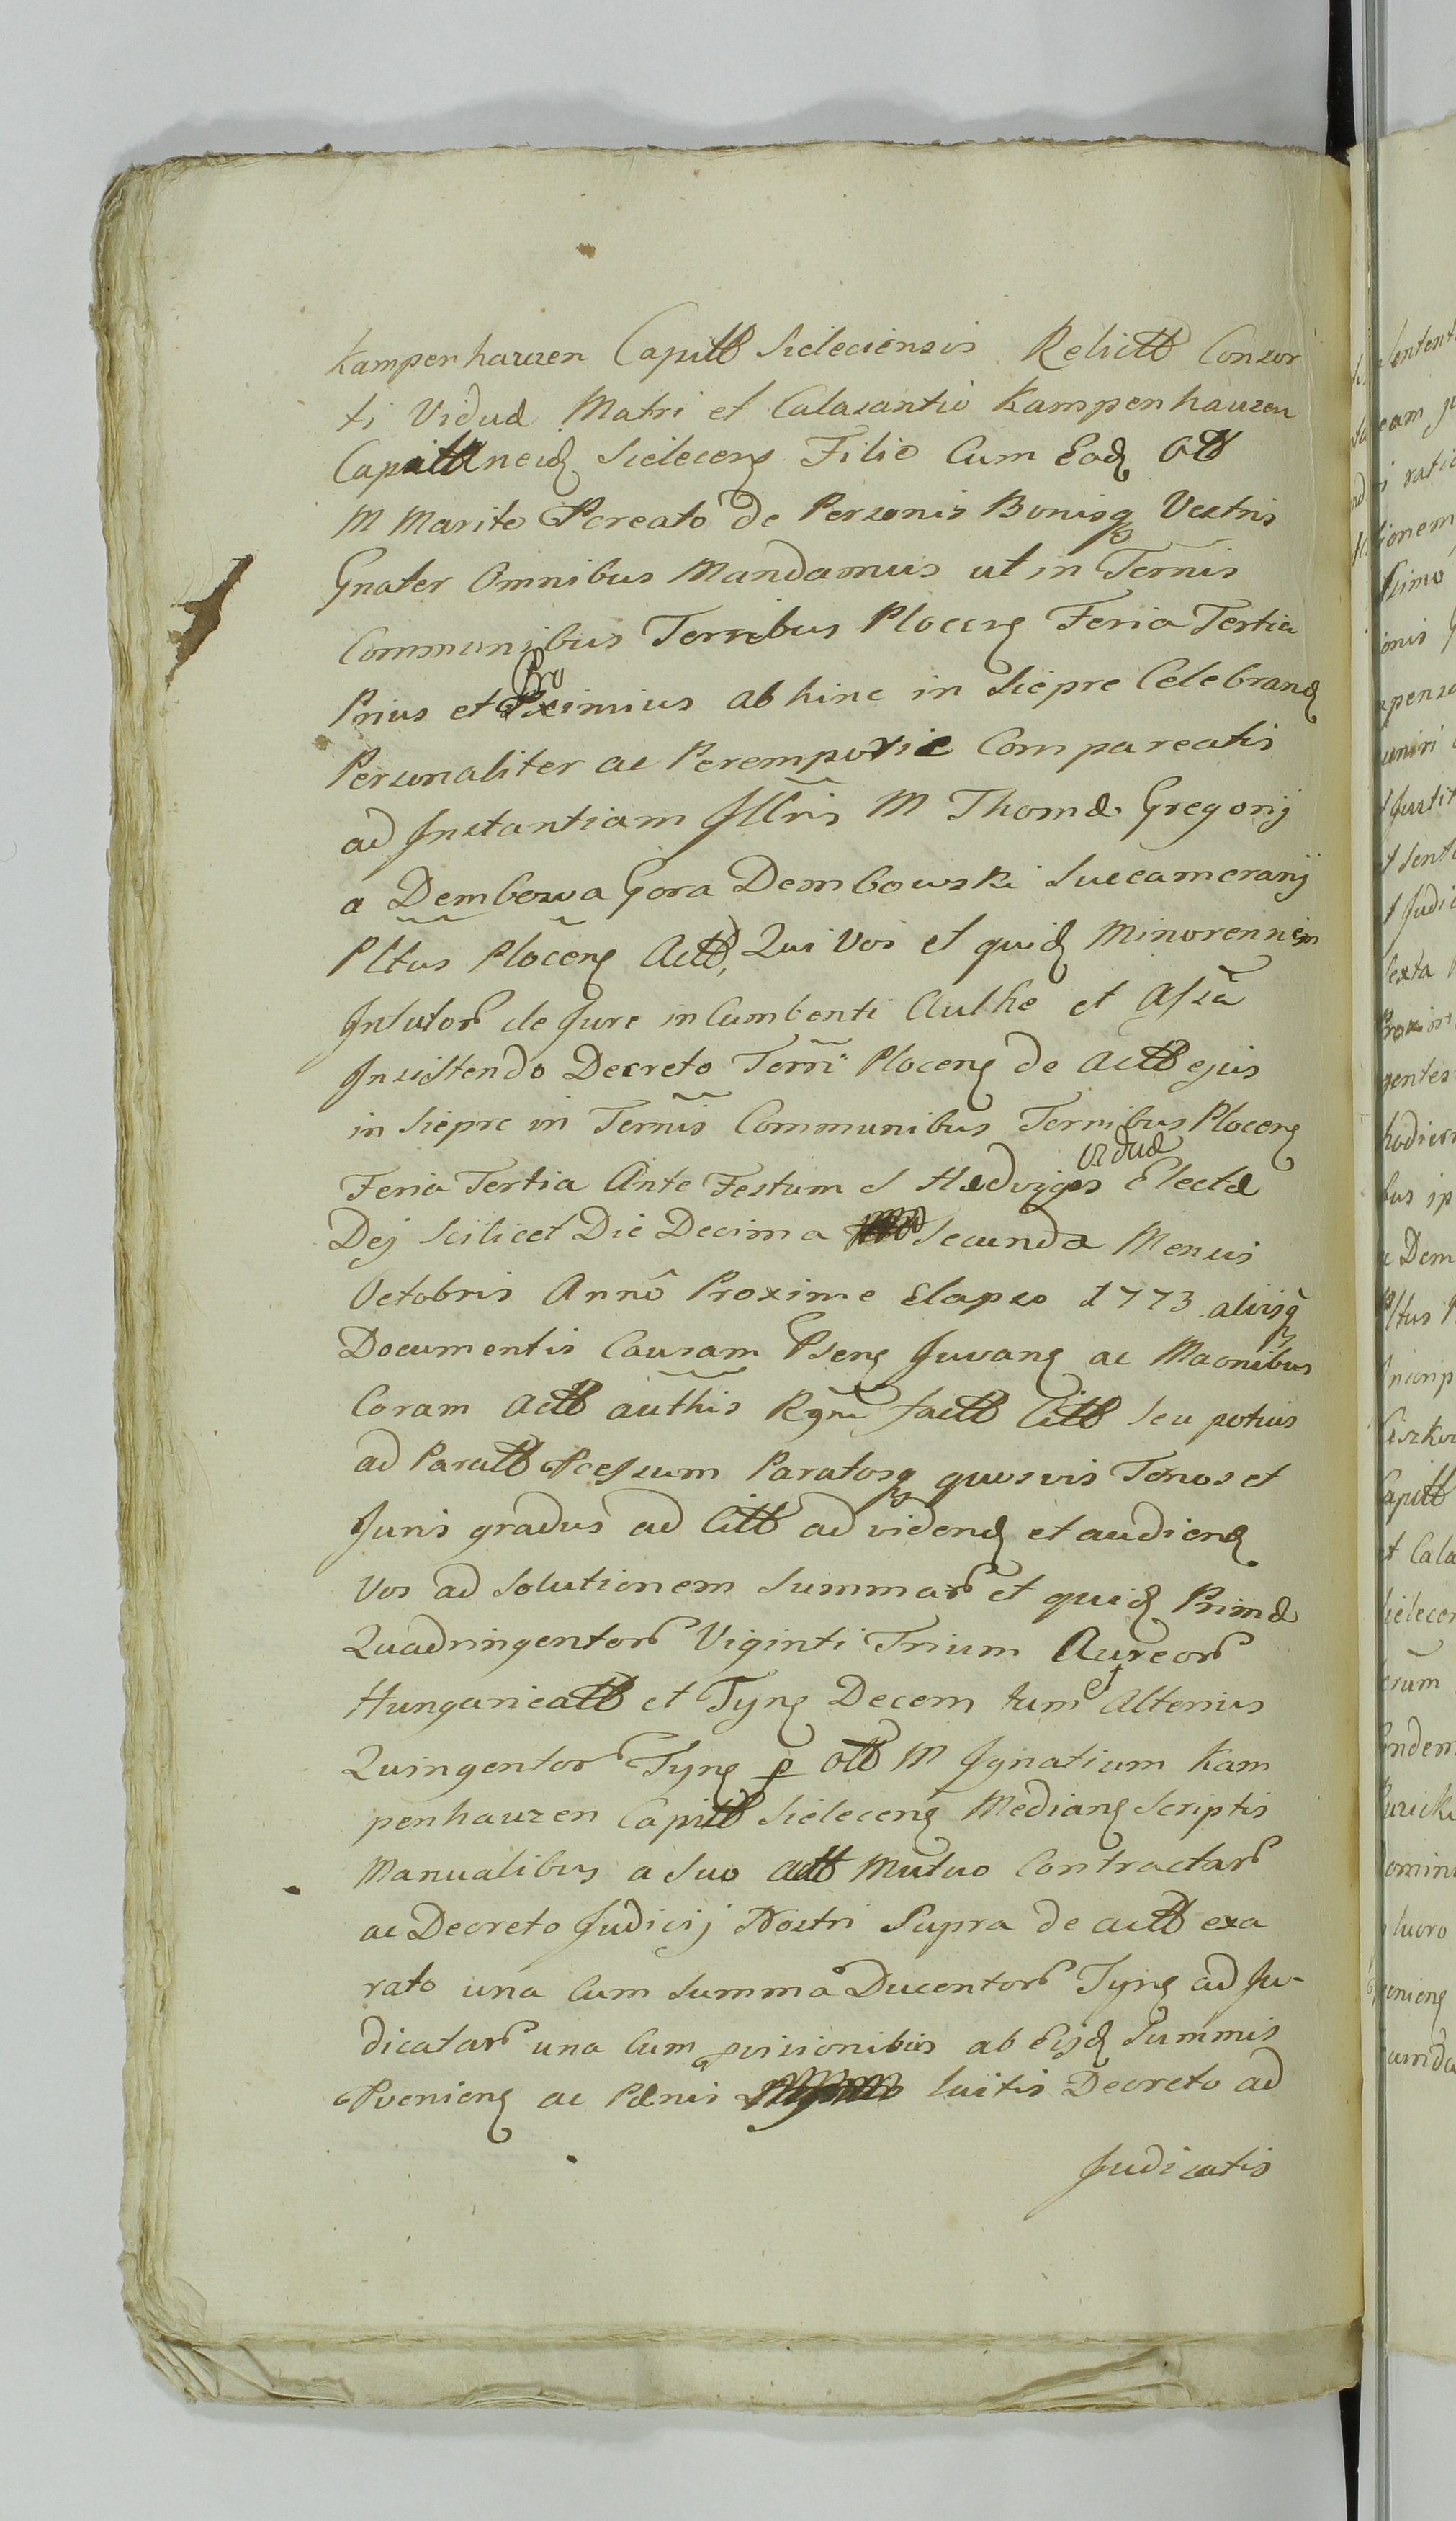 Kampenhauzen Capittt Sieleciensis Relicttt Conzor
ti Viduæ Matri et Calasantio Kampenhauzen
Capitttneid Sielecens Filio Cum Eod Ottt
M Marito Pcreato de Personis Bonisq Vestris
Gnater Omnibus Mandamus ut in Ternis
Communibus Terribus Plocens Feria Tertia
Prius et Proximius abhinc in Siepre Celebrand
Personaliter ac Peremptorie Compareatis
ad Instantiam Jllris M Thomæ Gregorij
a Dembowa Gora Dembowski Succamerarij
Pltus Plocens Acttt, Qui Vos et quid Minorennem
In tutor de Jure incumbenti Authe et Assa
Insistendo Decreto Terri Plocens de acttt ejus
in Siepre in Ternis Communibus Terribus Plocens
Feria Tertia Ante Festum S Hædvigis Viduæ Electæ
Dej Scilicet Die Decima Secunda Mensis
Octobris Anno Proxime Elapso 1773 alijsq
Documentis Causam Psens Juvans ac Maonibus
Coram acttt authis Rgni facttt Cittt seu potius
ad Parattt Pcessum Paratosq quosvis Tenos et
Juris gradus ad Cittt ad vidend et audiend
Vos ad Solutionem Summar et quid Primæ
Quadringentor Viginti Trium Aureor
Hungaricattt et Tyns Decem tum et Alterius
Quingentor Tyns p Ottt M Ignatium Kam
penhauzen Capittt Sielecens Medians Scriptis
Manualibus a Suo acttt Mutuo Contractar
ac Decreto Judicij Nostri Supra de acttt exa
rato una Cum Summa Ducentor Tyns ad Ju-
dicatar una Cum pvisionibus ab Eisd Summis
Pveniens ac Pænis luitis Decreto ad
Judicatis